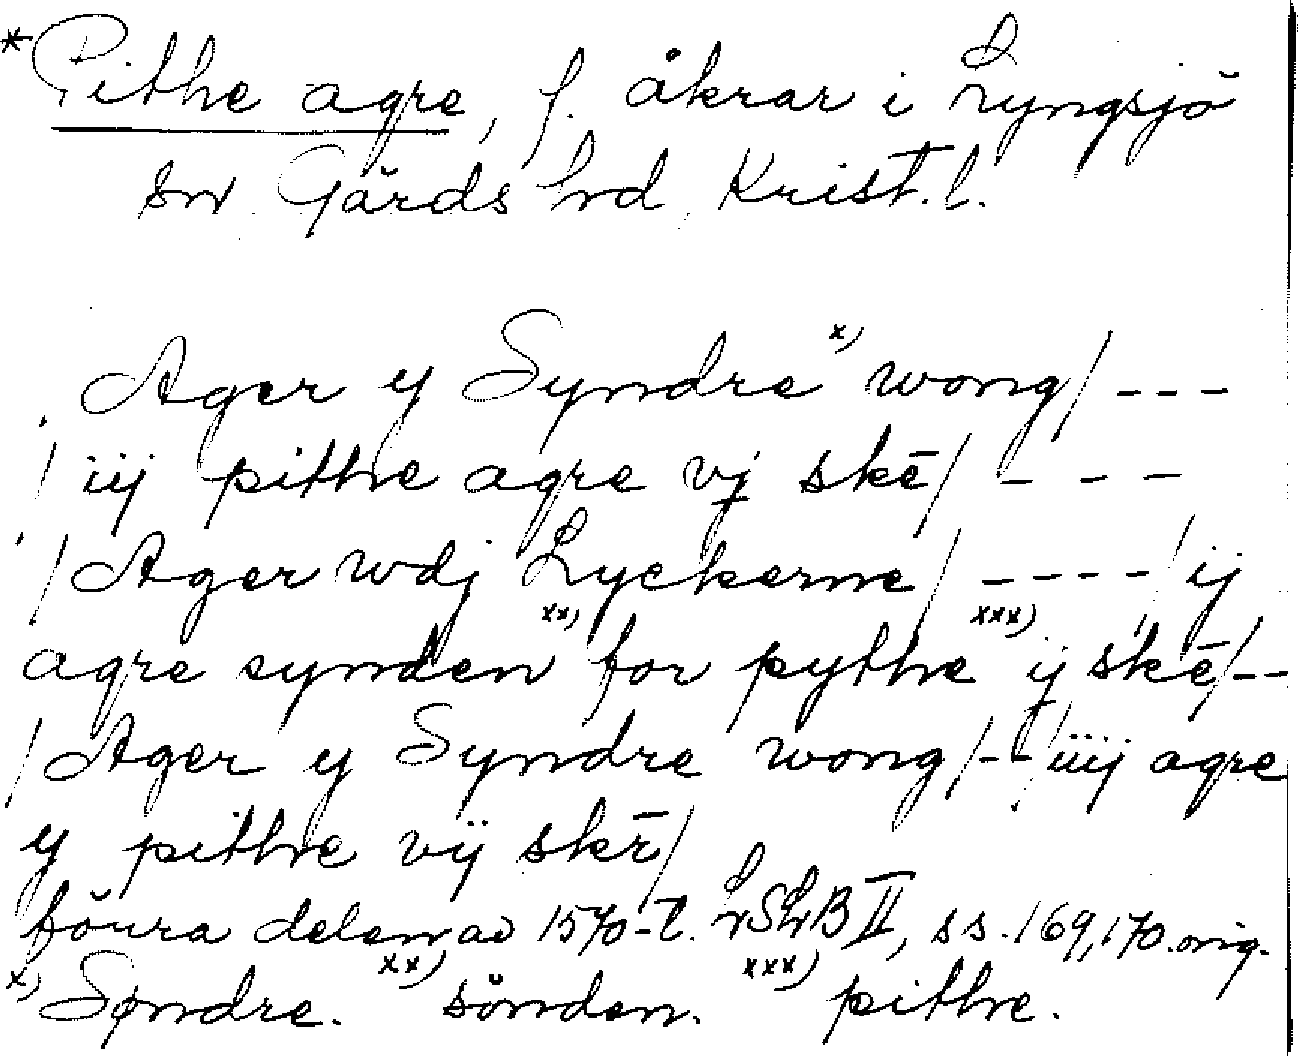 *Pithe agre, f. åkrar i Lyngsjö
sn Gärds hd, Krist. l.
Ager y Syndre x) wong/ ---
/ iij pithe agre vj skē/ - - -
/Ager wdj Lyckerne/ ---- / ij
agre synden xx) for pythe xxx) ij skē/--
/Ager y Syndre wong/--/iiij agre
y pithe vij skē/
förra delen av 1570-t. LSLB II, ss. 169, 170. orig.
x) Søndre. xx) sönden. xxx) pithe.